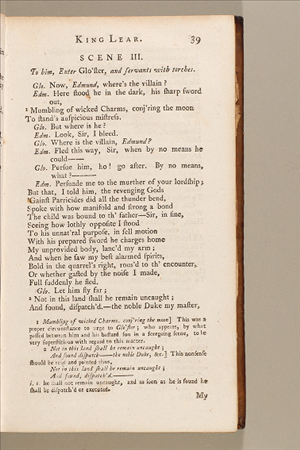 KING LEAR. 39
SCENE III.
To him, Enter Glo'ster, and servants with torches.
Glo. Now, Edmund, where's the villain ?
Edm. Here stood he in the dark, his sharp sword
out,
1 Mumbling of wicked Charms, conj'ring the moon
To stand's auspicious mistress.
Glo. But where is he ?
Edm. Look, Sir, I bleed.
Glo. Where is the villain, Edmund ?
Edm. Fled this way, Sir, when by no means he
could——
Glo. Pursue him, ho ! go after. By no means,
what ?———
Edm. Persuade me to the murther of your lordship ;
But that, I told him, the revenging Gods
'Gainst Parricides did all the thunder bend,
Spoke with how manifold and strong a bond
The child was bound to th' father—Sir, in fine,
Seeing how lothly opposite I stood
To his unnat'ral purpose, in fell motion
With his prepared sword he charges home
My unprovided body, lanc'd my arm ;
And when he saw my best alarmed spirits,
Bold in the quarrel's right, rous'd to th' encounter,
Or whether gasted by the noise I made,
Full suddenly he fled.
Glo. Let him fly far ;
2 Not in this land shall he remain uncaught ;
And found, dispatch'd.—the noble Duke my master,
1 Mumbling of wicked Charms, conj'ring the moon] This was a
proper circumstance to urge to Glo'ster ; who appears, by what
passed between him and his bastard son in a foregoing scene, to be
very superstitious with regard to this matter.
2 Not in this land shall he remain uncaught ;
And found dispatch——the noble Duke, &c.] This nonsense
should be read and pointed thus,
Not in this land shall he remain uncaught ;
And found, dispatch'd.———
i. e. he shall not remain uncaught, and as soon as he is found he
shall be dispatch'd or executed.
My